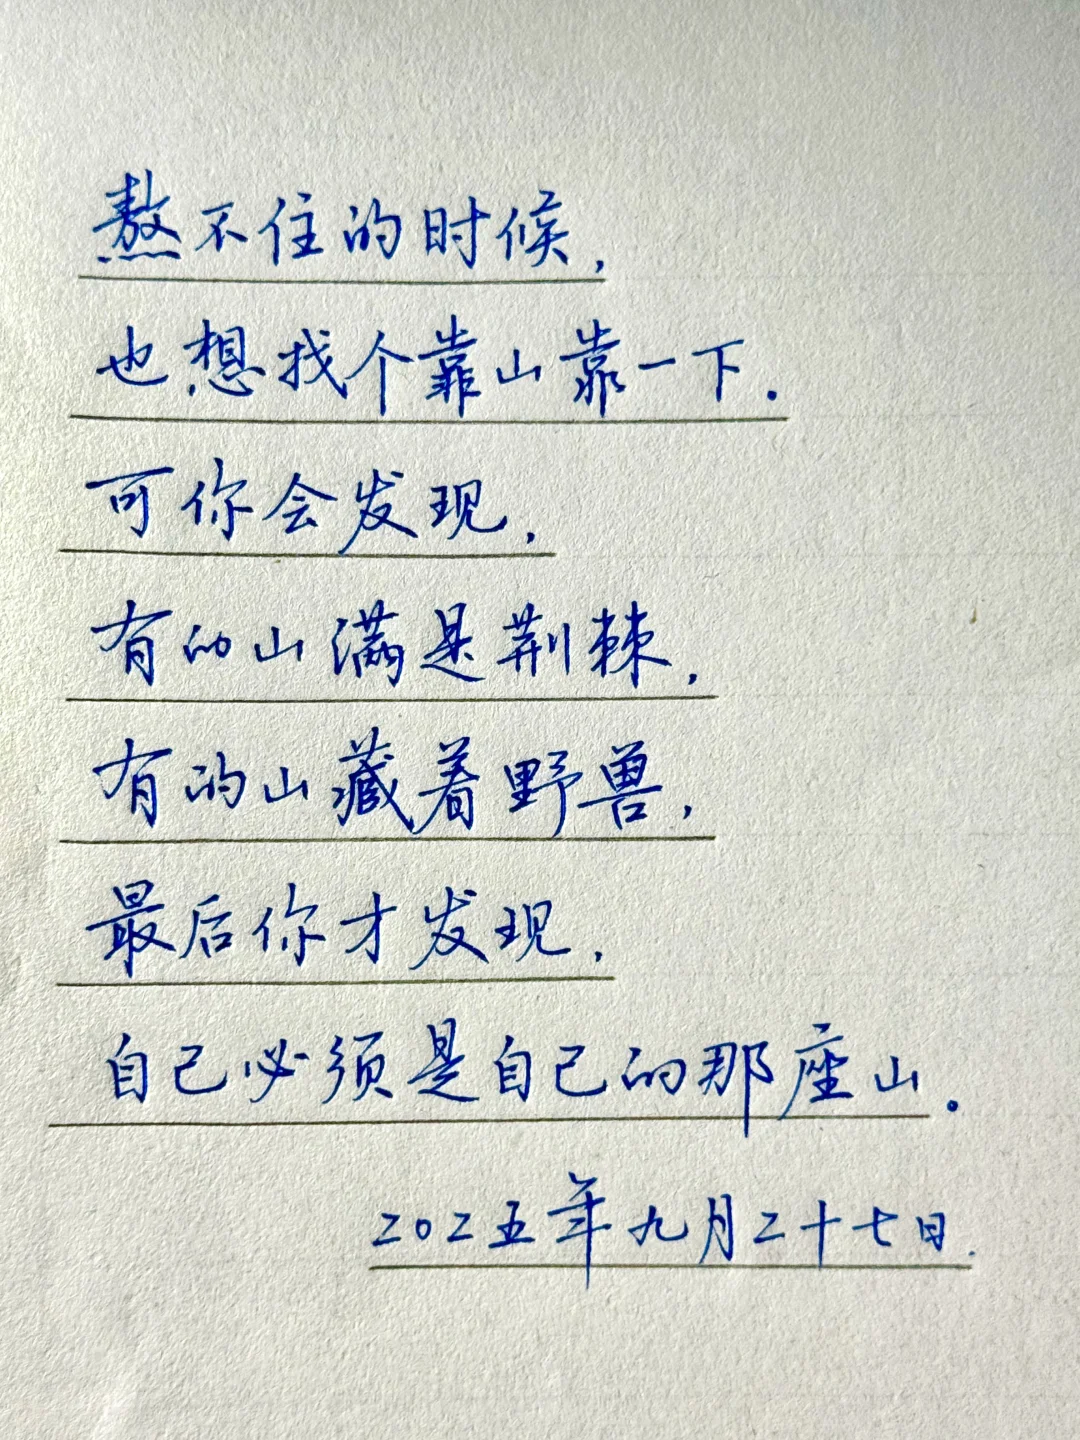 熬不住的时候，
也想找个靠山靠一下.
可你会发现，
有的山满是荆棘，
有的山藏着野兽，
最后你才发现，
自己必须是自己的那座山.
202五年九月二十七日.